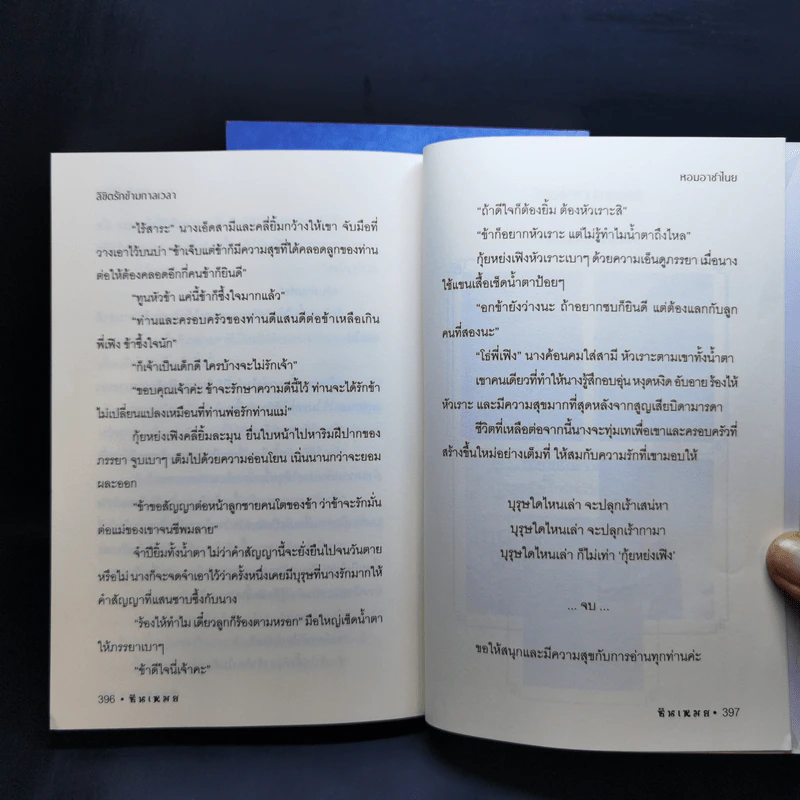 ลิขิตรักข้ามกาลเวลา
"ไร้สาระ" นางเอ็ดสามีและคลี่ยิ้มกว้างให้เขา จับมือที่
วางเอาไว้บนบ่า "ข้าเจ็บแต่ข้าก็มีความสุขที่ได้คลอดลูกของท่าน
ต่อให้ต้องคลอดอีกกี่คนข้าก็ยินดี"
"ทูนหัวข้า แค่นี้ข้าก็ซึ้งใจมากแล้ว"
"ท่านและครอบครัวของท่านดีแสนดีต่อข้าเหลือเกิน
พี่เฟิง ข้าซึ้งใจนัก"
"ก็เจ้าเป็นเด็กดี ใครบ้างจะไม่รักเจ้า"
"ขอบคุณเจ้าค่ะ ข้าจะรักษาความดีนี้ไว้ ท่านจะได้รักข้า
ไม่เปลี่ยนแปลงเหมือนที่ท่านพ่อรักท่านแม่"
กุ้ยหย่งเฟิงคลี่ยิ้มละมุน ยื่นใบหน้าไปหาริมฝีปากของ
ภรรยา จูบเบาๆ เต็มไปด้วยความอ่อนโยน เนิ่นนานกว่าจะยอม
ผละออก
"ข้าขอสัญญาต่อหน้าลูกชายคนโตของข้า ว่าข้าจะรักมั่น
ต่อแม่ของเขาจนชีพมลาย"
จำปียิ้มทั้งน้ำตา ไม่ว่าคำสัญญานี้จะยั่งยืนไปจนวันตาย
หรือไม่ นางก็จะจดจำเอาไว้ว่าครั้งหนึ่งเคยมีบุรุษที่นางรักมากให้
คำสัญญาที่แสนซาบซึ้งกับนาง
"ร้องไห้ทำไม เดี๋ยวลูกก็ร้องตามหรอก" มือใหญ่เช็ดน้ำตา
ให้ภรรยาเบาๆ
"ข้าดีใจนี่เจ้าคะ"
396 • หินเหมย
หอมอาชาไนย
"ถ้าดีใจก็ต้องยิ้ม ต้องหัวเราะสิ"
"ข้าก็อยากหัวเราะ แต่ไม่รู้ทำไมน้ำตาถึงไหล"
กุ้ยหย่งเฟิงหัวเราะเบาๆ ด้วยความเอ็นดูภรรยา เมื่อนาง
ใช้แขนเสื้อเช็ดน้ำตาป้อยๆ
"อกข้ายังว่างนะ ถ้าอยากซบก็ยินดี แต่ต้องแลกกับลูก
คนที่สองนะ"
"โธ่พี่เฟิง" นางค้อนคมใส่สามี หัวเราะตามเขาทั้งน้ำตา
เขาคนเดียวที่ทำให้นางรู้สึกอบอุ่น หงุดหงิด อับอาย ร้องไห้
หัวเราะ และมีความสุขมากที่สุดหลังจากสูญเสียบิดามารดา
ชีวิตที่เหลือต่อจากนี้นางจะทุ่มเทเพื่อเขาและครอบครัวที่
สร้างขึ้นใหม่อย่างเต็มที่ ให้สมกับความรักที่เขามอบให้
บุรุษใดไหนเล่า จะปลุกเร้าเสน่หา
บุรุษใดไหนเล่า จะปลุกเร้ากามา
บุรุษใดไหนเล่า ก็ไม่เท่า 'กุ้ยหย่งเฟิง'
... จบ ...
ขอให้สนุกและมีความสุขกับการอ่านทุกท่านค่ะ
หินเหมย • 397